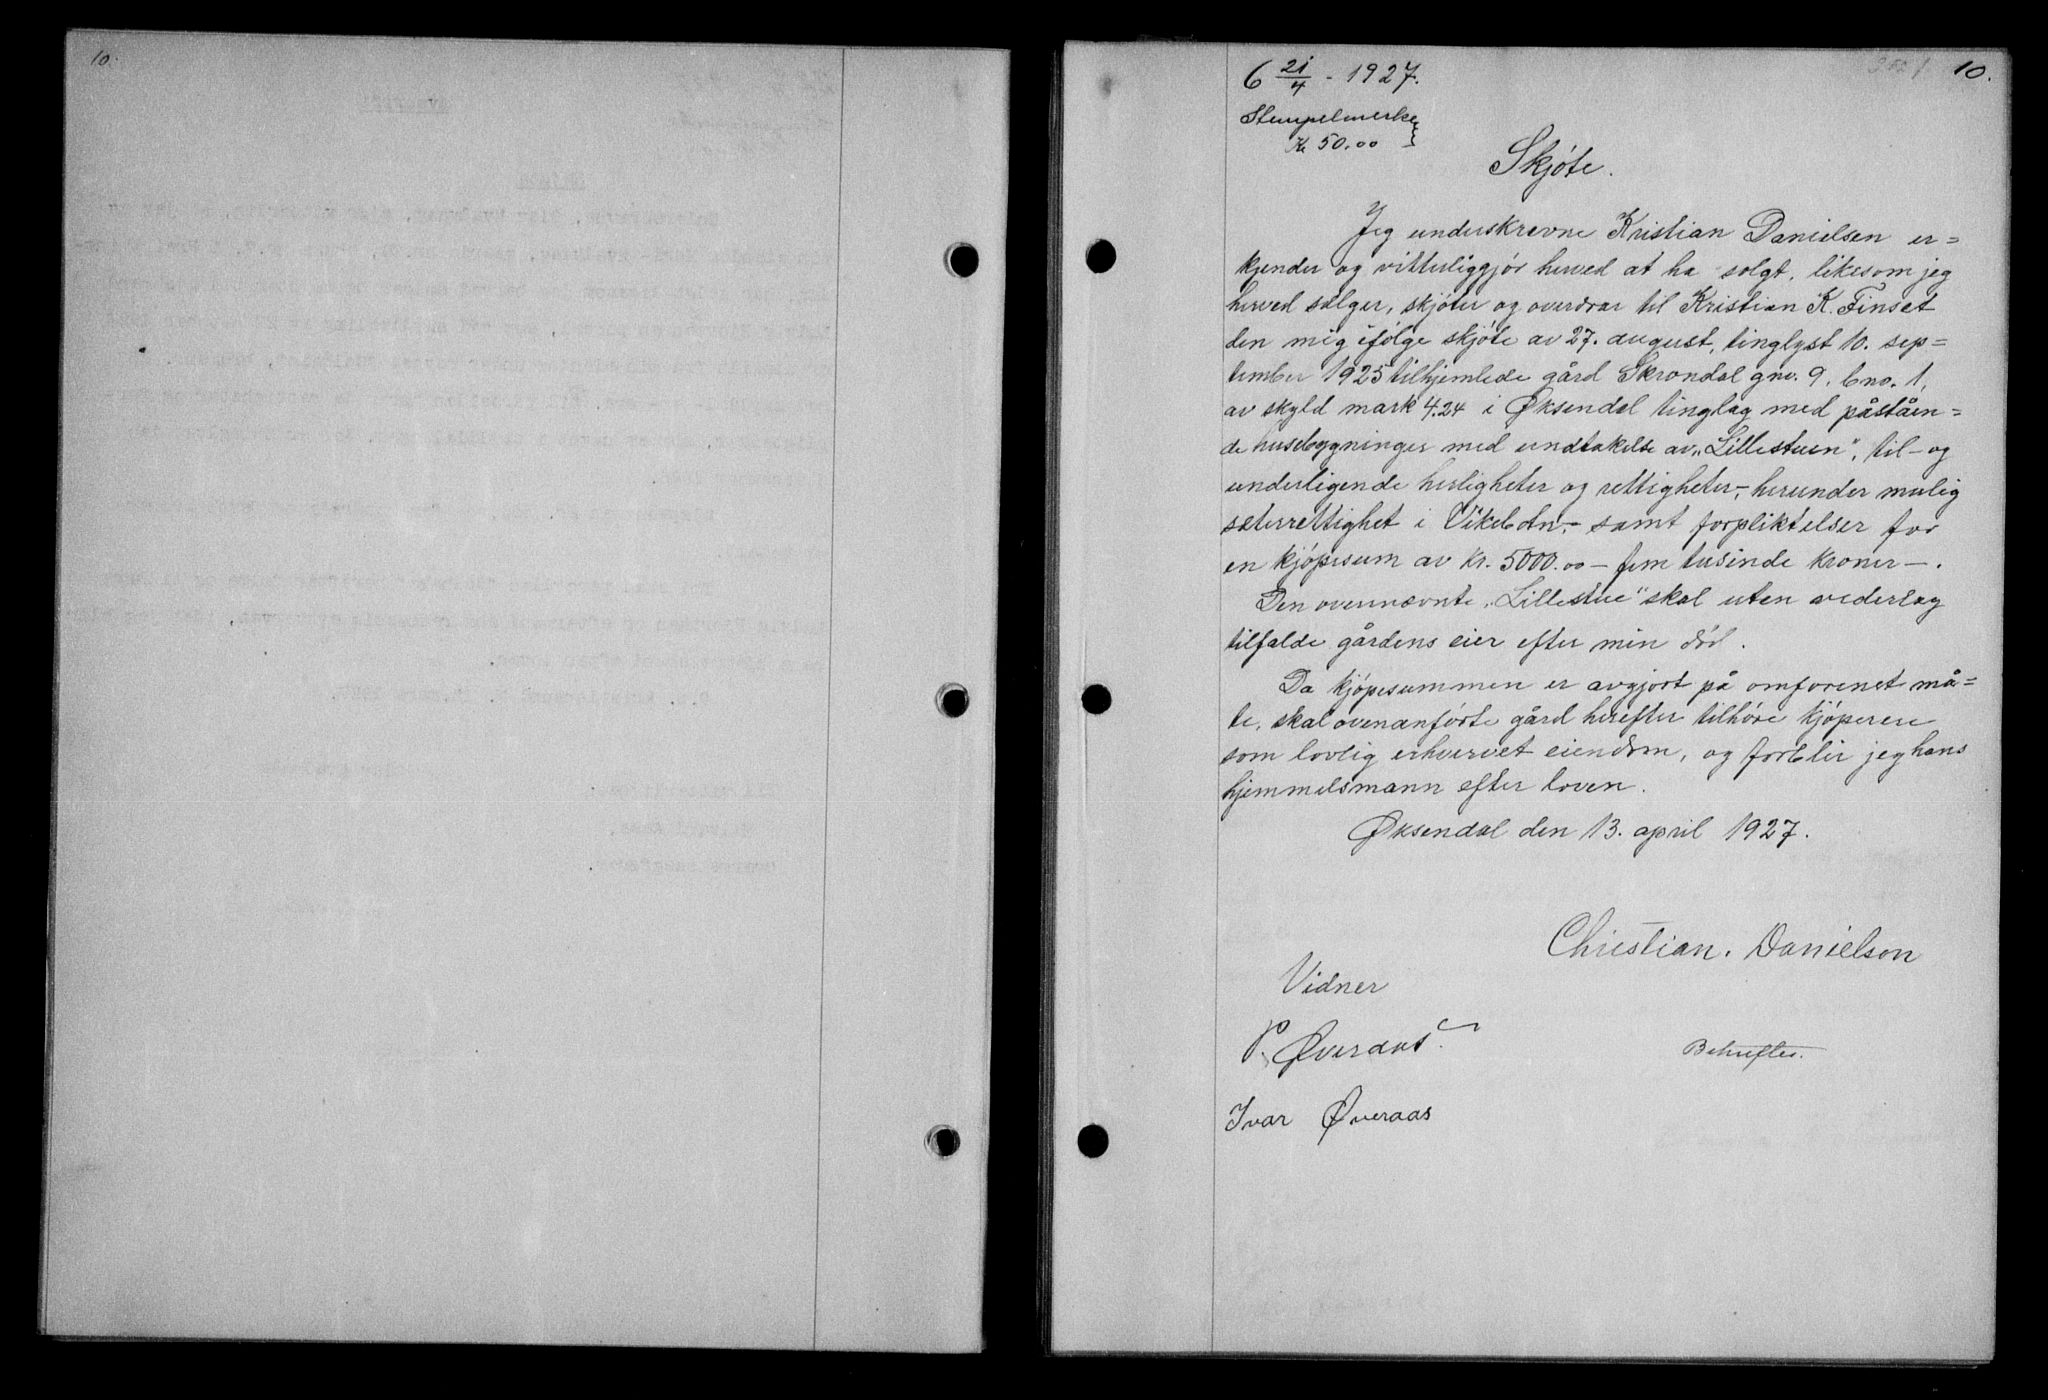 10.
10.
6 21/4 - 1927.
Stempelmerke
Kr 50.00
Skjøte.
Jeg underskrevne Kristian Danielsen er=
kjender og vitterliggjør herved at ha solgt, likesom jeg
herved sælger, skjøter og overdrar til Kristian K. Finset
den mig ifølge skjøte av 27. august, tinglyst 10. sep=
tember 1925 tilhjemlede gård Skrondal gnr. 9. bno. 1,
av skyld mark 4.24 i Øksendal tinglag med påståen=
de husebygninger med undtakelse av „Lillestuen", til- og
underligende herligheter og rettigheter,- herunder mulig
sæterrettighet i Vikebotn,- samt forpliktelser for
en kjøpesum av kr. 5000.00 - fem tusinde kroner -.
Den ovennævnte „Lillestue" skal uten vederlag
tilfalde gårdens eier efter min død.
Da kjøpesummen er avgjort på omforenet må=
te, skal ovenanførte gård herefter tilhøre kjøperen
som lovlig erhvervet eiendom, og forblir jeg hans
hjemmelsmann efter loven.
Øksendal den 13. april 1927.
Christian. Danielson
Vidner
P. Øveraas.
Bekræftes.
Ivar Øveraas